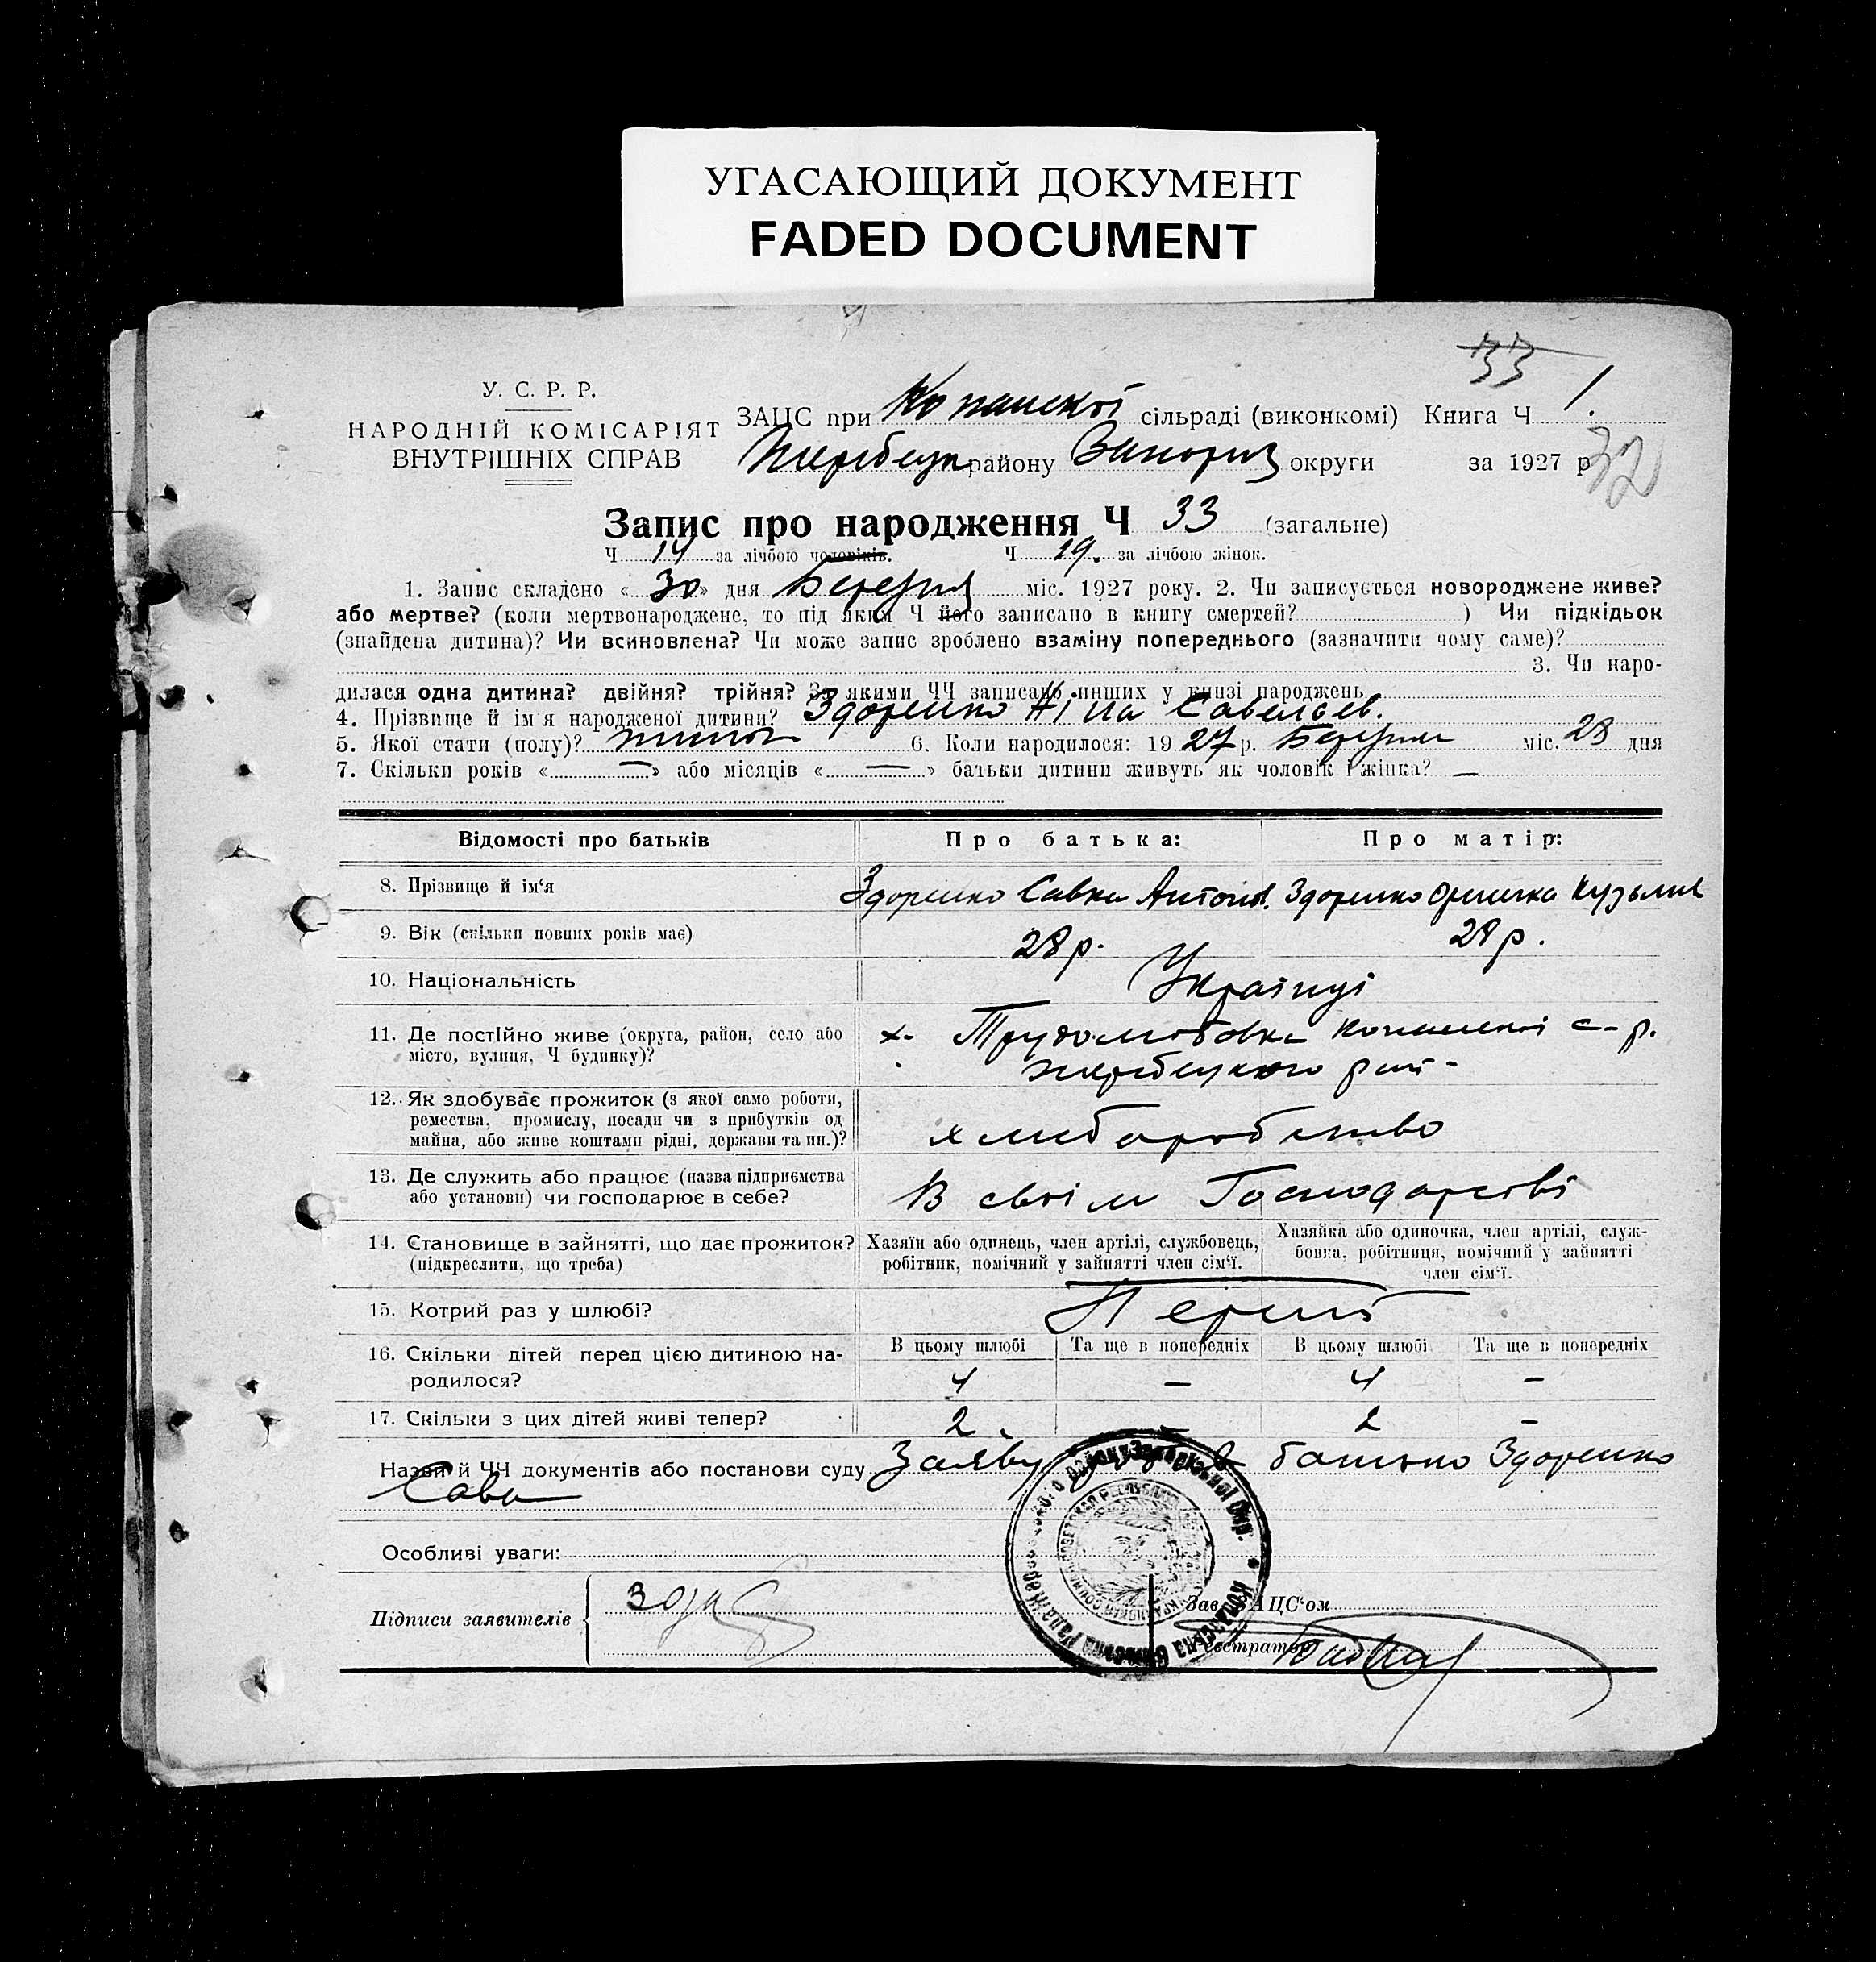 УГАСАЮЩИЙ ДОКУМЕНТ
FADED DOCUMENT
33
У. С. Р. Р.
НАРОДНІЙ КОМІСАРІЯТ
ВНУТРІШНІХ СПРАВ
ЗАЦС при Копанскої сільраді (виконкомі) Книга Ч 1.
району округи за 1927 р
32
Запис про народження Ч 33 (загальне)
Ч 14 за лічбою чоловіків. Ч 19. за лічбою жінок.
1. Запис складено « 30 » дня Березня міс. 1927 року. 2. Чи записується новороджене живе?
або мертве? (коли мертвонароджене, то під яким Ч його записано в книгу смертей? ) Чи підкідьок
(знайдена дитина)? Чи всиновлена? Чи може запис зроблено взаміну попереднього (зазначити чому саме)?
3. Чи наро-
дилася одна дитина? двійня? трійня? За якими ЧЧ записано инших у книзі народжень
4. Прізвище й ім'я народженої дитини? Здоренко Ніна Савельєв.
5. Якої стати (полу)? жіноч 6. Коли народилося: 19 27 р. Березня міс. 28 дня
7. Скільки років « — » або місяців « — » батьки дитини живуть як чоловік і жінка? —
Відомості про батьків Про батька: Про матір:
8. Прізвище й ім'я Здоренко Савка Антонов. Здоренко Кузьмив
9. Вік (скільки повних років має) 28 р. 28 р.
10. Національність Українці
11. Де постійно живе (округа, район, село або х. Трудолюбовка Копанської с-р.
місто, вулиця, Ч будинку)? жеребецького рай-
12. Як здобуває прожиток (з якої саме роботи,
ремества, промислу, посади чи з прибутків од
майна, або живе коштами рідні, держави та ин.)? хлиборобство
13. Де служить або працює (назва підприємства
або установи) чи господарює в себе? В своїм Господарстві
14. Становище в зайнятті, що дає прожиток? Хазяїн або одинець, член артілі, службовець, Хазяйка або одиночка, член артілі, служ-
(підкреслити, що треба) робітник, помічний у зайнятті член сім'ї. бовка, робітниця, помічний у зайнятті
член сім'ї.
15. Котрий раз у шлюбі? Перший
16. Скільки дітей перед цією дитиною на- В цьому шлюбі Та ще в попередніх В цьому шлюбі Та ще в попередніх
родилося? 4 — 4 —
17. Скільки з цих дітей живі тепер? 2 — 2 —
Назви й ЧЧ документів або постанови суду Заяву батько Здоренко
Сава
Особливі уваги:
Підписи заявителів
Зав. ЗАЦС'ом
Реєстратор